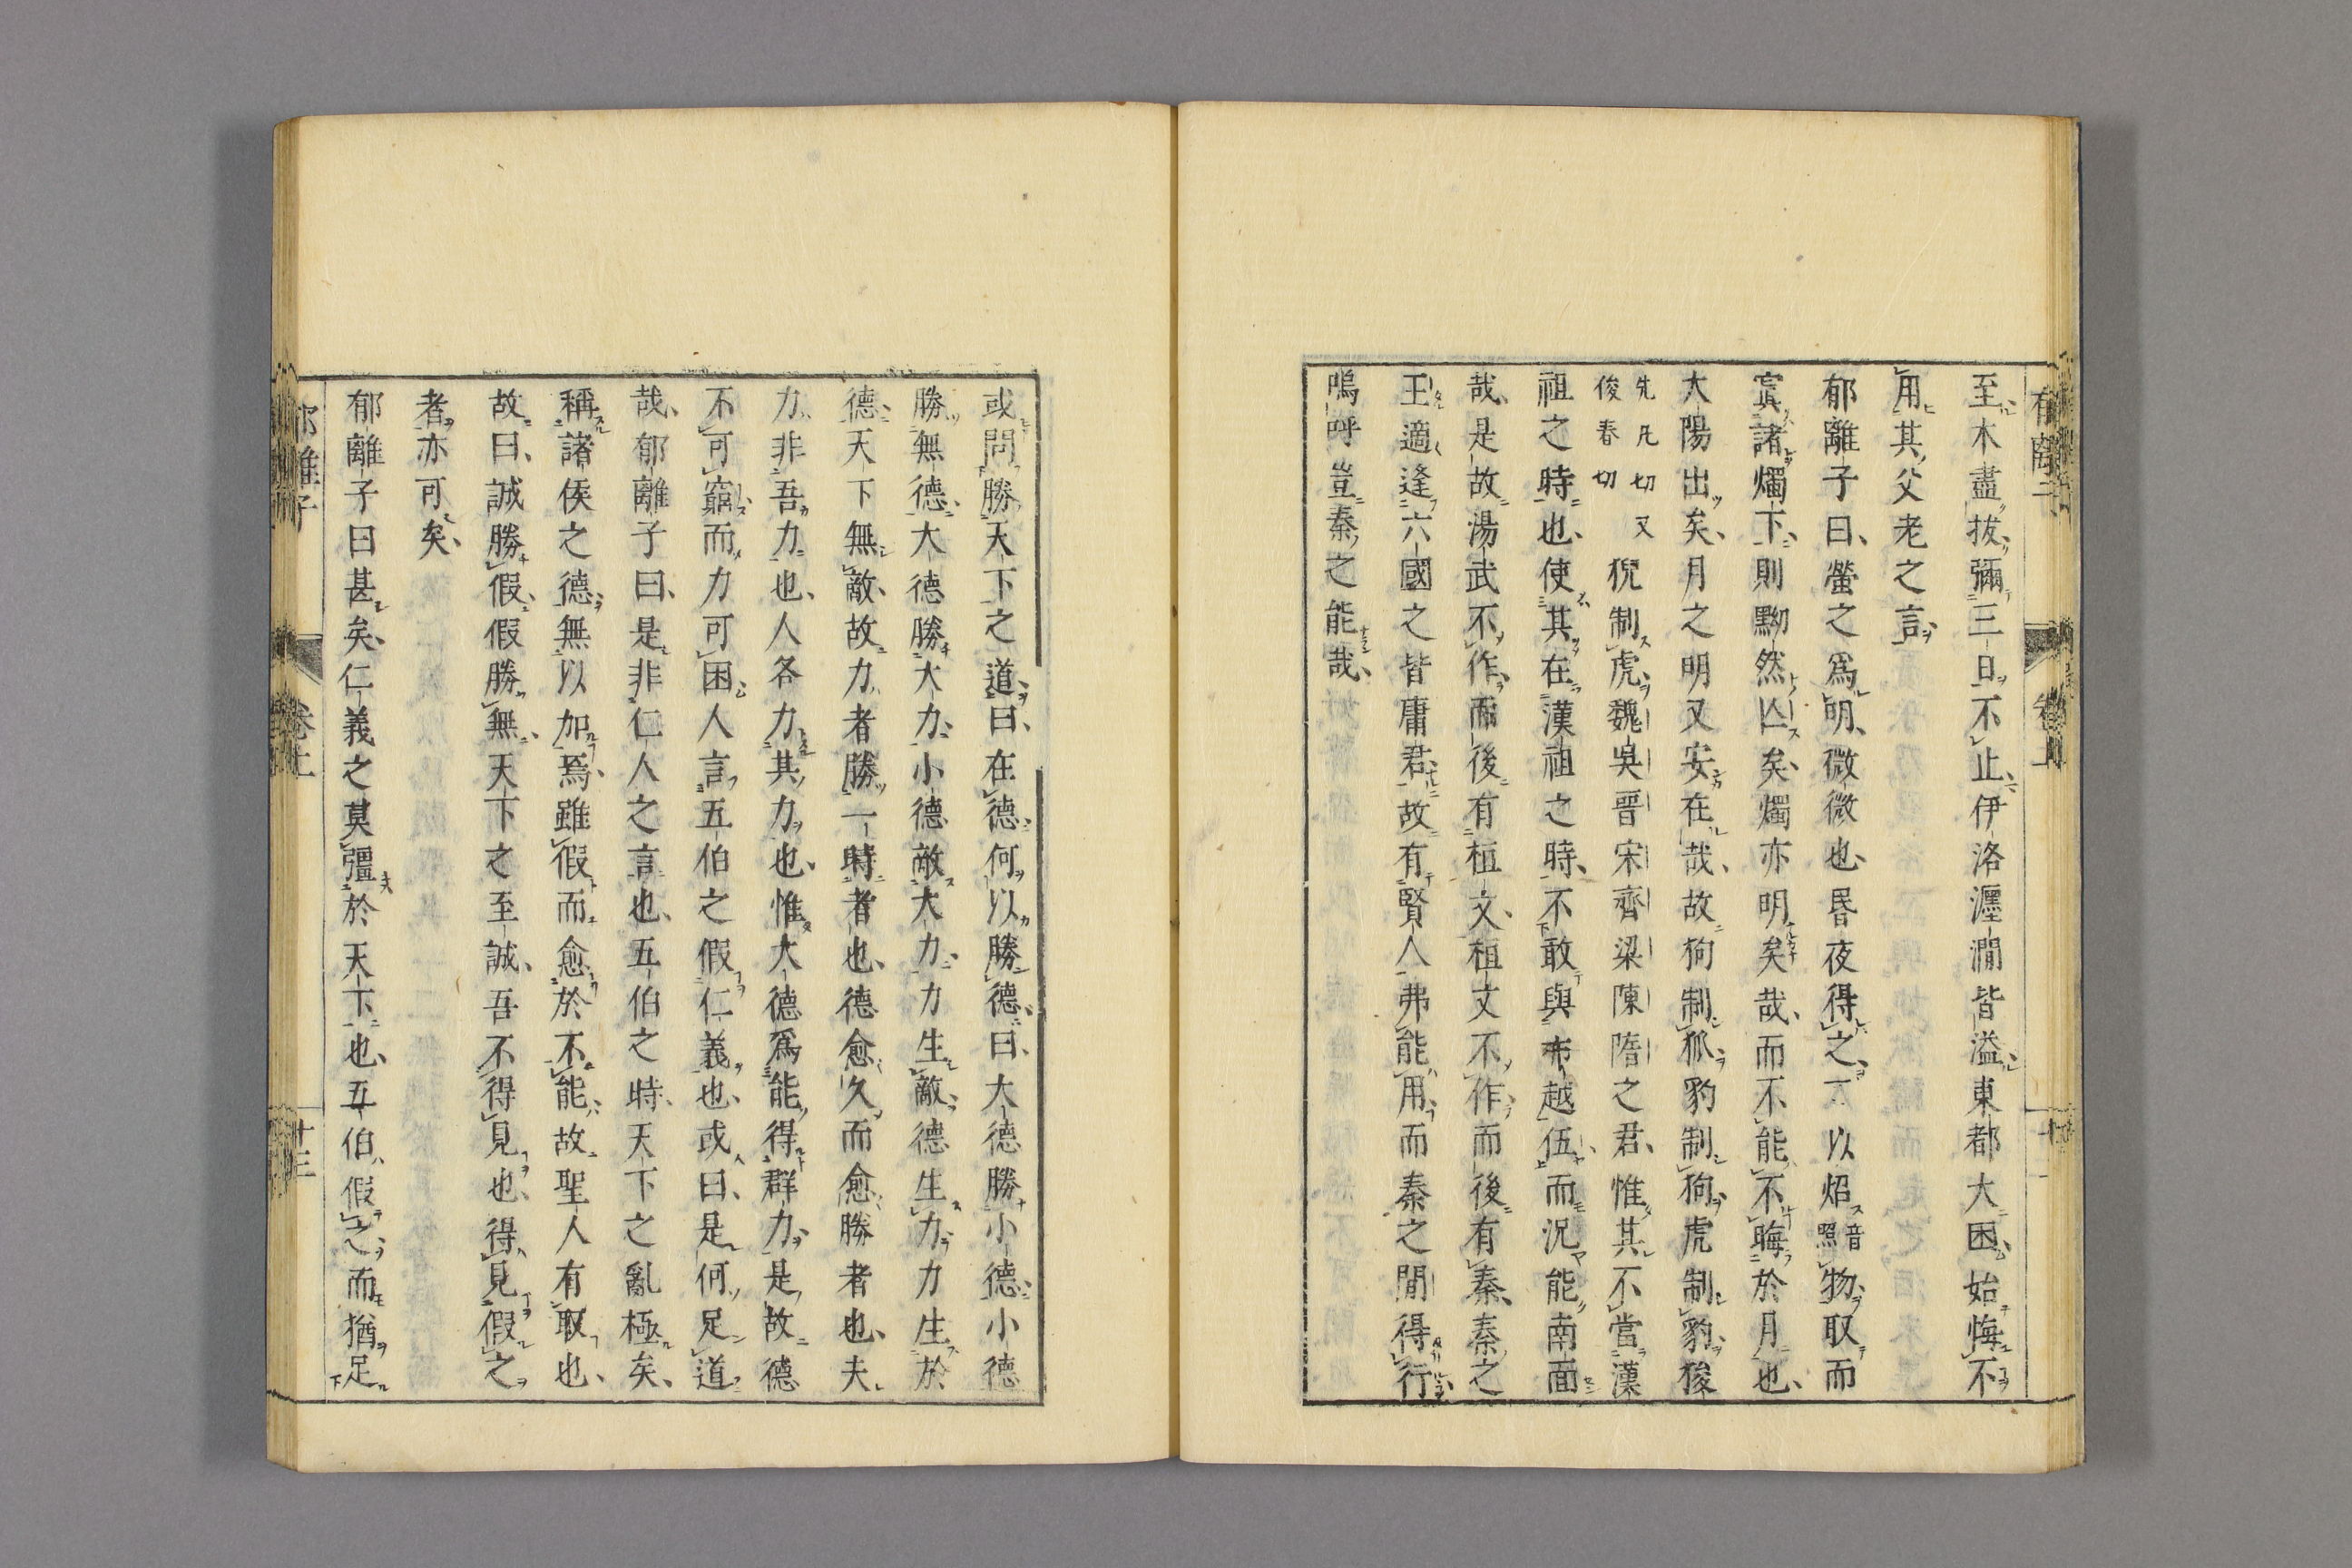 至木盡拔彌三日不止伊洛瀍澗皆溢東都大困始悔不
用其父老之言
郁離子曰螢之爲明微微也昏夜得之可以炤音照物取而
寘諸燭下則黝然亾矣燭亦明矣哉而不能不晦於月也
太陽出矣月之明又安在哉故狗制狐豹制狗虎制豹狻
先凡切又俊春切猊制虎魏吳晋宋齊梁陳隋之君惟其不當漢
祖之時也使其在漢祖之時不敢與布越伍而況能南面
哉是故湯武不作而後有桓文桓文不作而後有秦秦之
王適逢六國之皆庸君故有賢人弗能用而秦之間得行
嗚呼豈秦之能哉
或問勝天下之道曰在德何以勝德曰大德勝小德小德
勝無德大德勝大力小德敵大力力生敵德生力力生於
德天下無敵故力者勝一時者也德愈久而愈勝者也夫
力非吾力也人各力其力也惟大德爲能得群力是故德
不可窮而力可困人言五伯之假仁義也或曰是何足道
哉郁離子曰是非仁人之言也五伯之時天下之亂極矣
稱諸侯之德無以加焉雖假而愈於不能故聖人有取也
故曰誠勝假假勝無天下之至誠吾不得見也得見假之
者亦可矣
郁離子曰甚矣仁義之莫彊於天下也五伯假之而猶足
郁離子
卷上
十三